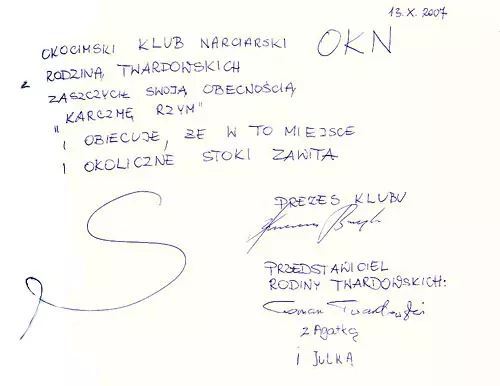 13.X.2007
OKOCIMSKI KLUB NARCIARSKI OKN
Z RODZINĄ TWARDOWSKICH
ZASZCZYCIŁ SWOJĄ OBECNOŚCIĄ
"KARCZMĘ RZYM"
I OBIECUJE, ŻE W TO MIEJSCE
I OKOLICZNE STOKI ZAWITA
PREZES KLUBU
PRZEDSTAWICIEL
RODZINY TWARDOWSKICH:
Roman Twardowski
z Agatką
i JULKĄ